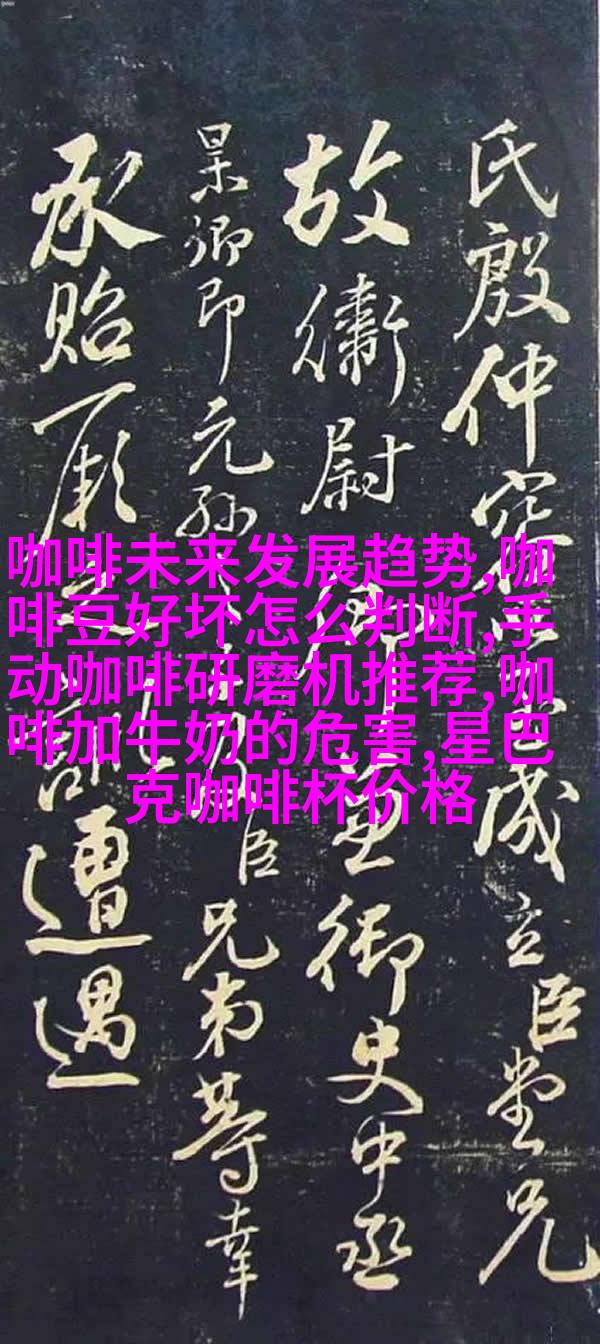 氏殷仲容成立臣堂兄
故衛尉卿兼御史中丞
杲卿即元孙臣兄弟等幸
承貽厥之訓遭遇
咖啡未来发展趋势,咖
啡豆好坏怎么判断,手
动咖啡研磨机推荐,咖
啡加牛奶的危害,星巴
克咖啡杯价格